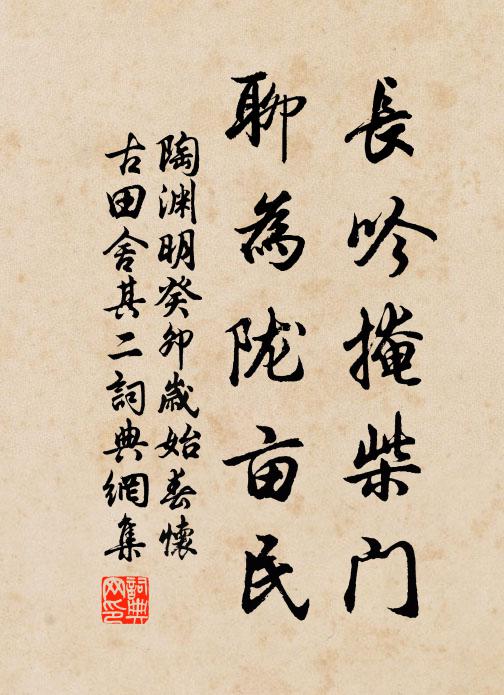 長吟掩柴门
聊為陇亩民
陶渊明癸卯歲始春懷
古田舍其二詞典網集
詞典
网印